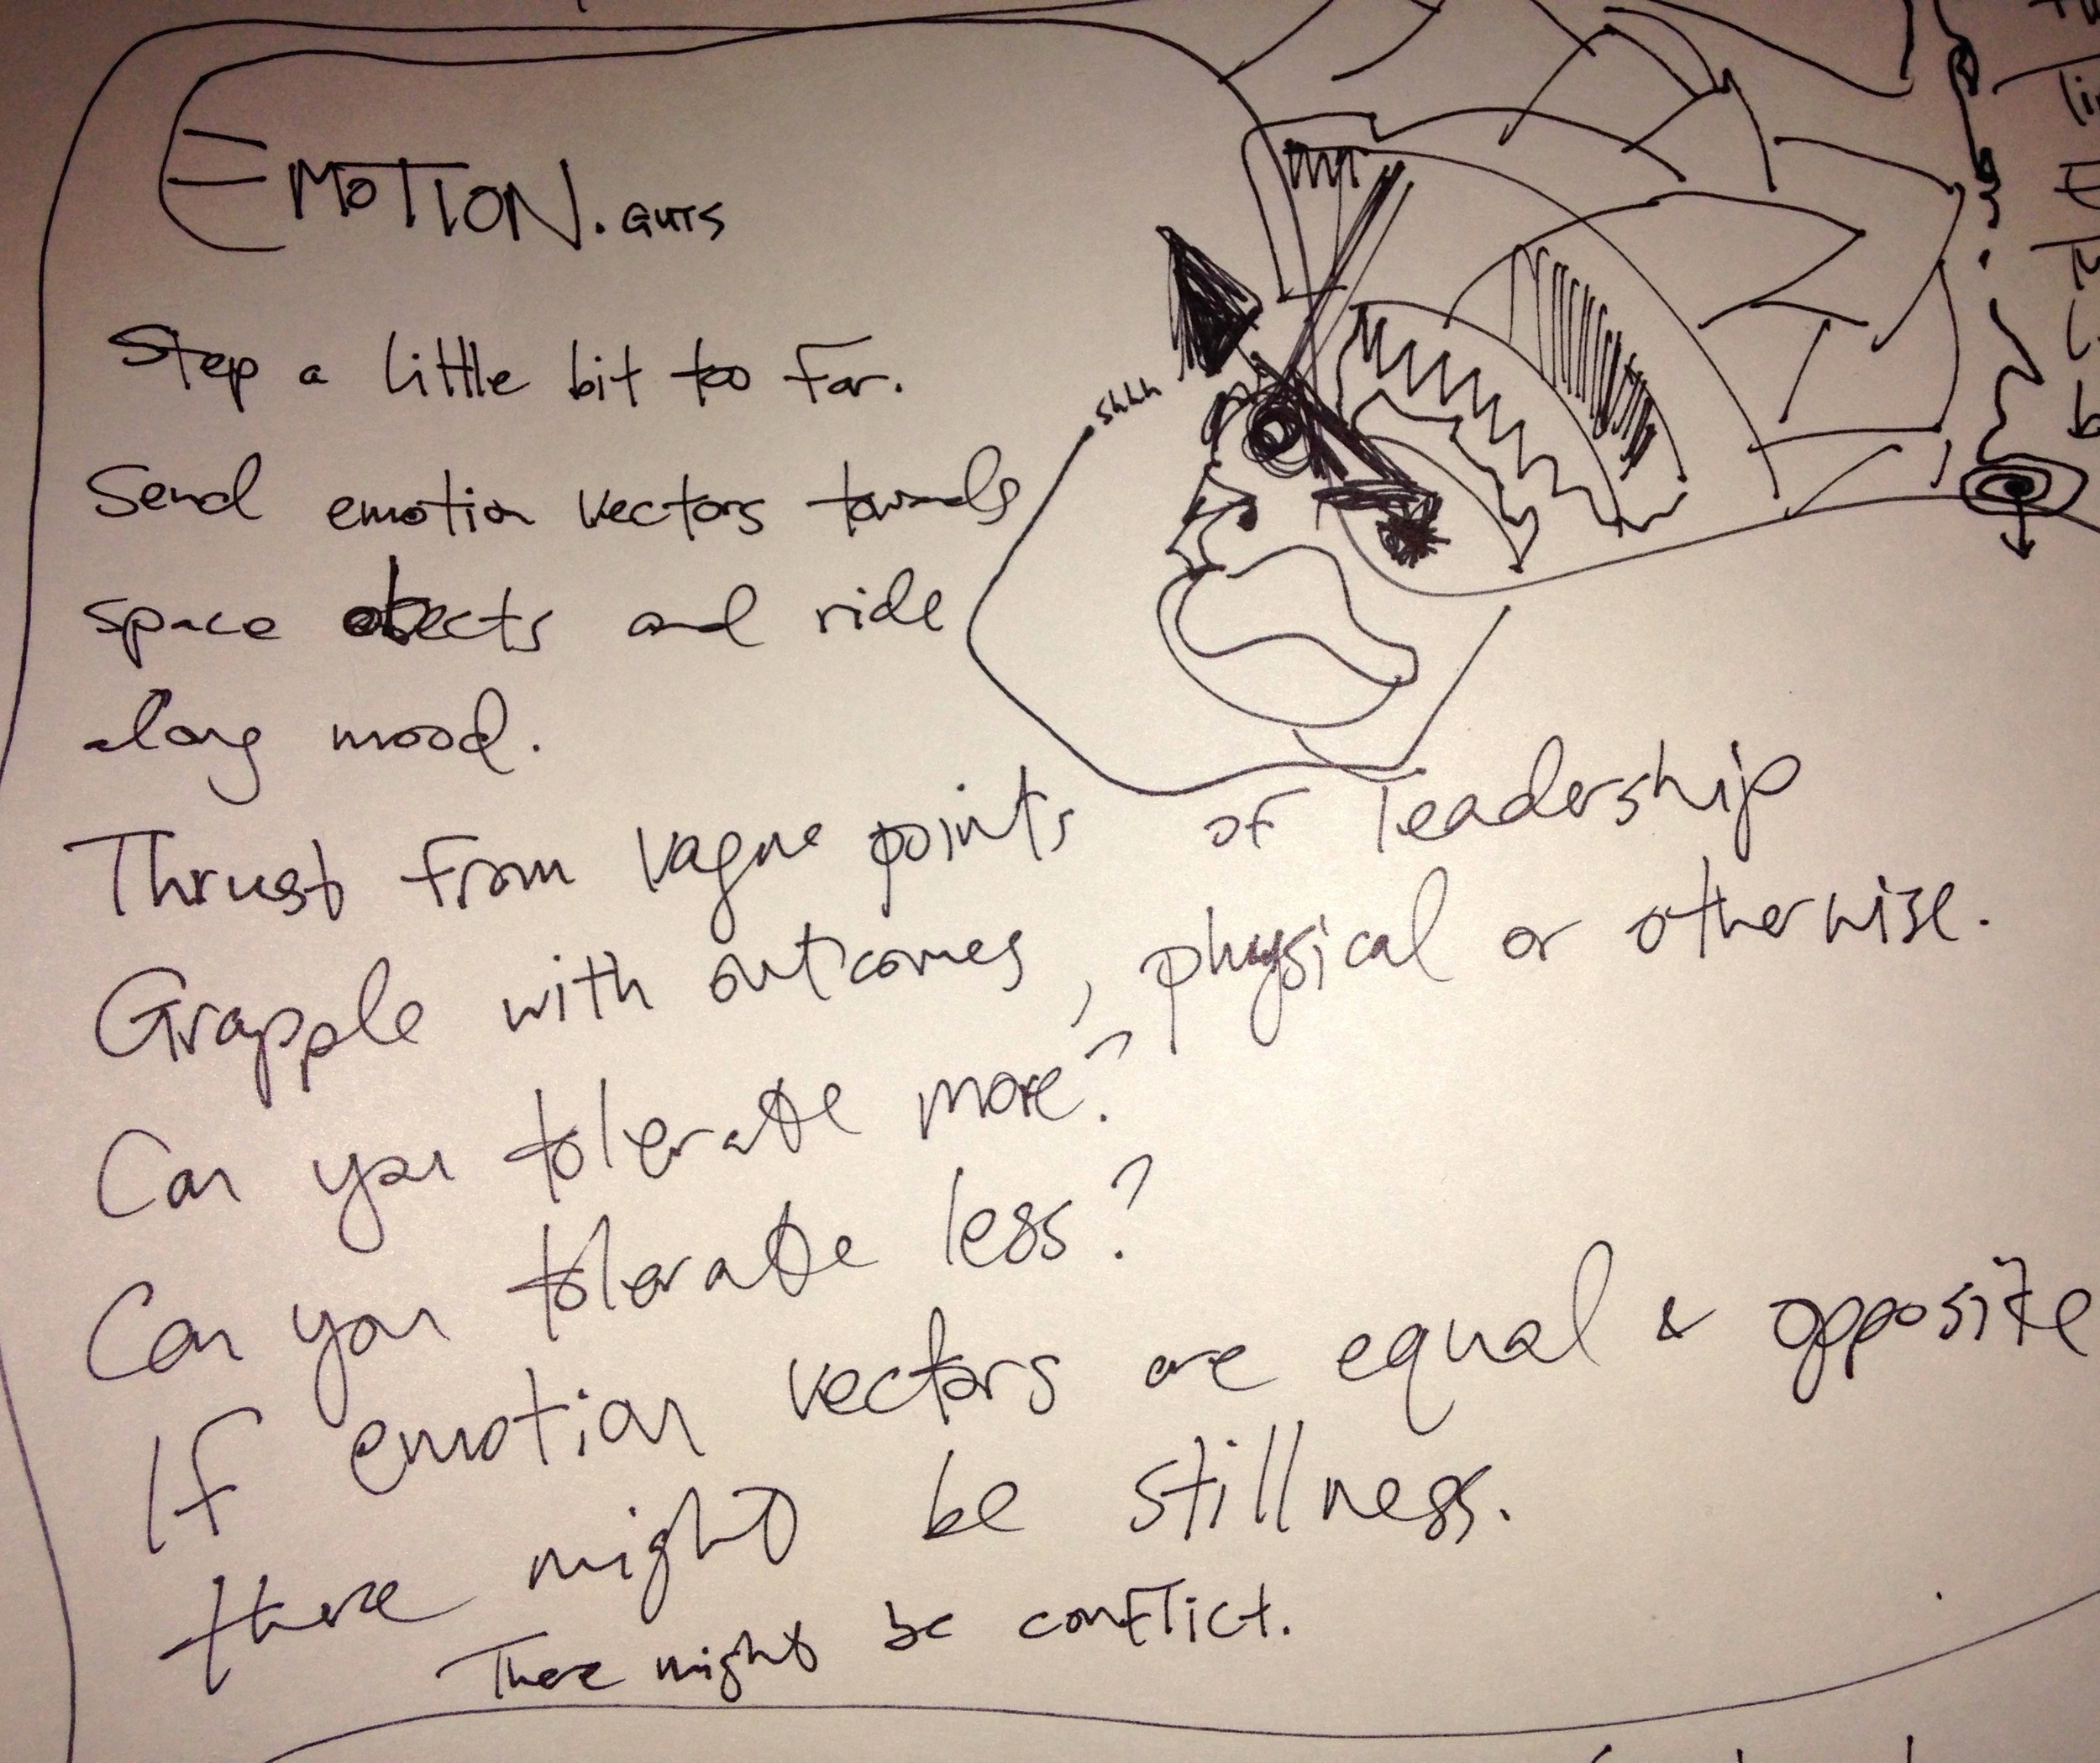 EMOTION. GUTS
Step a little bit too far.
Send emotion vectors towards
shhh
space obects and ride
along mood.
Thrust from vague points of leadership
Grapple with outcomes, physical or otherwise.
Can you tolerate more?
Can you tolerate less?
If emotion vectors are equal & opposite
there might be stillness.
There might be conflict.